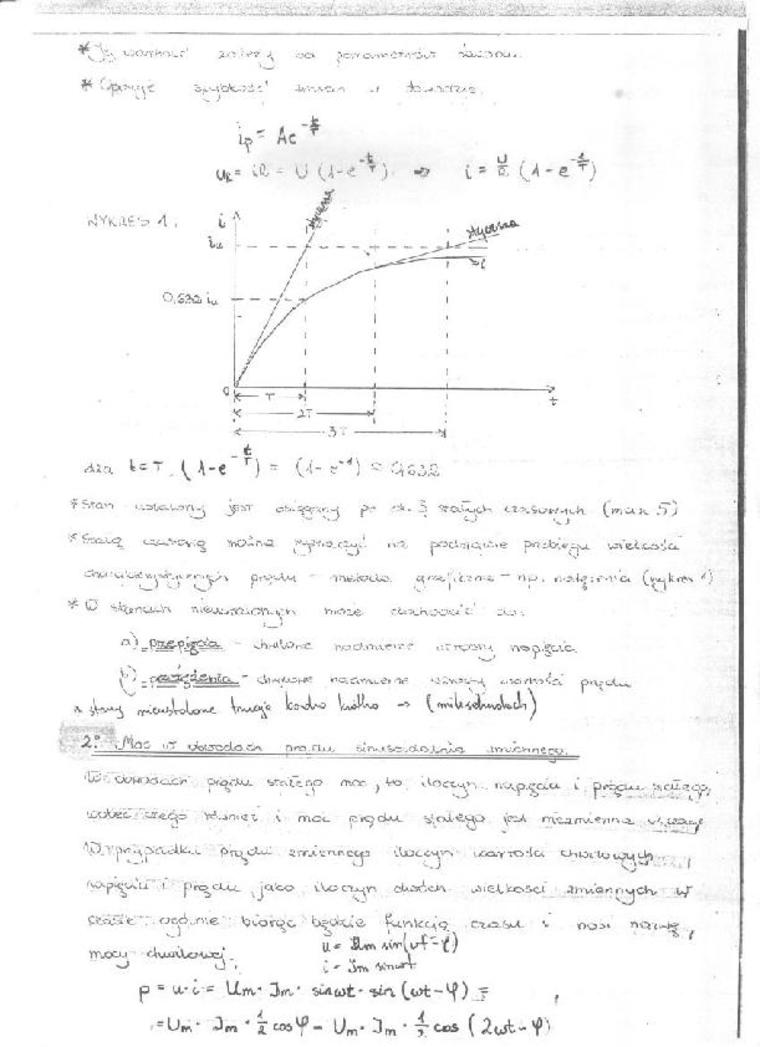 * Jej wartość zależy od parametrów
* Opisuje szybkość zmian w
ip = Ae^(-t/T)
u_R = iR = U (1-e^(-t/T)) ⇒ i = U/R (1-e^(-t/T))
WYKRES 1.
i
styczna
styczna
i_u
i
0,632 i_u
0
T
t
2T
3T
dla t=T (1-e^(-t/T)) = (1-e^(-1)) = 0,632
* Stan ustalony jest osiągany po ok. 3 stałych czasowych (max 5)
* Stałą czasową można wyznaczyć na podstawie przebiegu wielkości
charakterystycznych prądu - metoda graficzna - np. natężenia (wykres 1)
* W stanach nieustalonych może dochodzić do:
a) przepięcia - chwilowe nadmierne wzrosty napięcia
b) przetężenia - chwilowe nadmierne wzrosty wartości prądu
* stany nieustalone trwają bardzo krótko → (milisekundach)
2.° Moc w obwodach prądu sinusoidalnie zmiennego.
W obwodach prądu stałego moc, to iloczyn napięcia i prądu stałego,
wobec czego również i moc prądu stałego jest niezmienna w czasie
W przypadku prądu zmiennego iloczyn wartości chwilowych,
napięcia i prądu, jako iloczyn dwóch wielkości zmiennych w
czasie, ogólnie biorąc będzie funkcją czasu i nosi nazwę,
mocy chwilowej.
u = Um sin(ωt-φ)
i = Jm sinωt
p = u·i = Um · Jm · sinωt · sin (ωt-φ) =
= Um · Jm · 1/2 cosφ - Um · Jm · 1/2 cos (2ωt-φ)